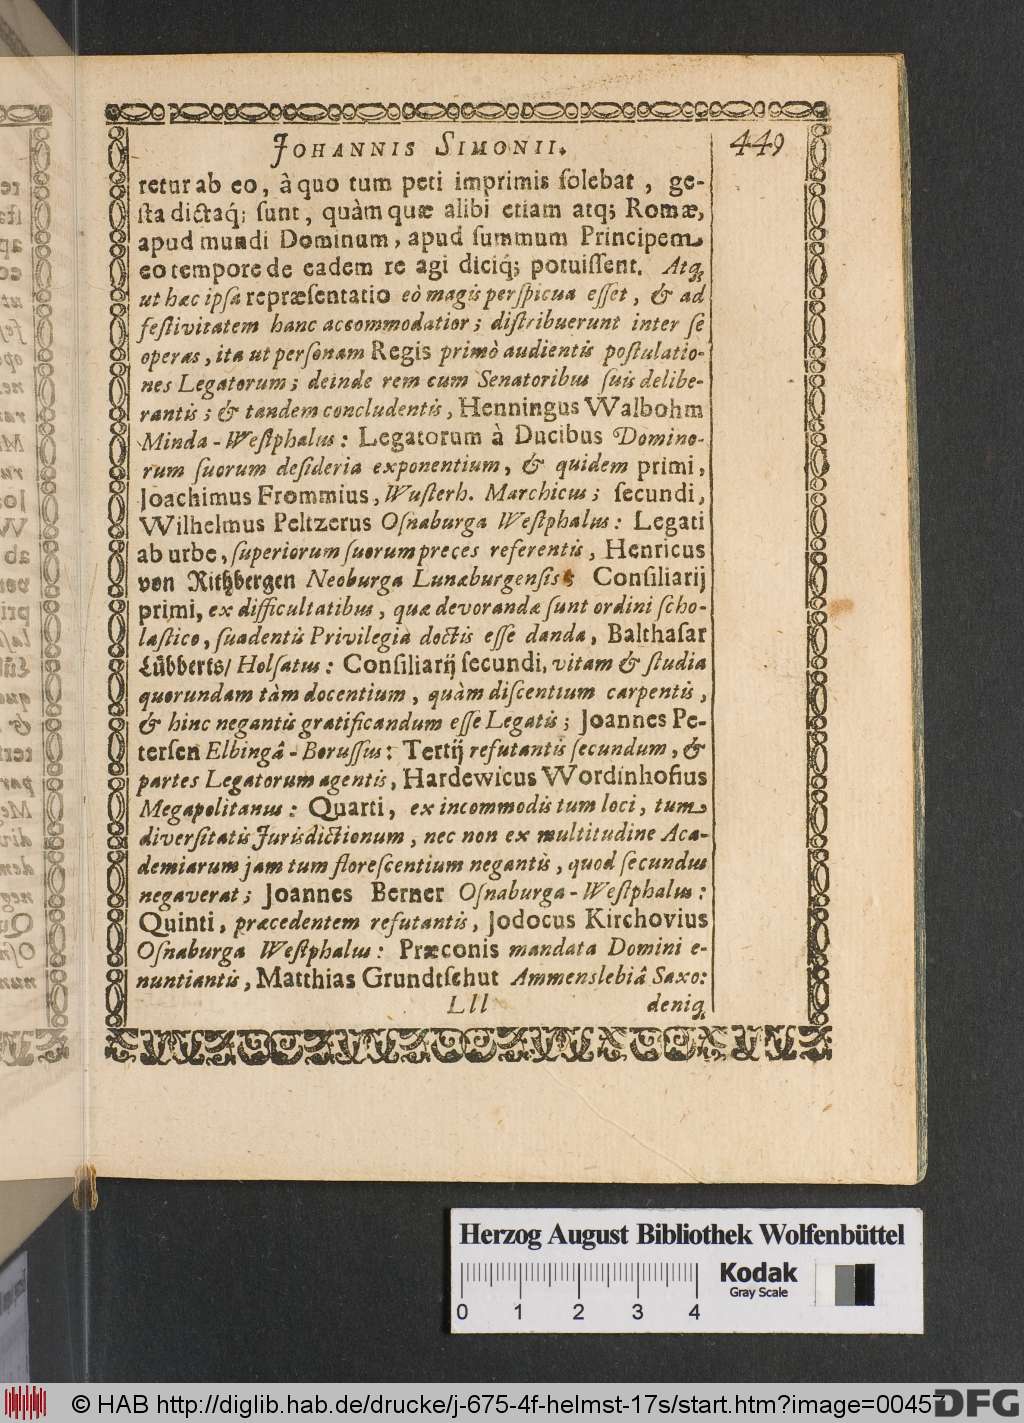 JOHANNIS SIMONII. 449
retur ab eo, à quo tum peti imprimis solebat, ge-
sta dictaq́; sunt, quàm quæ alibi etiam atq; Romæ,
apud mundi Dominum, apud summum Principem
eo tempore de eadem re agi diciq́; potuissent. Atq;
ut hæc ipsa repræsentatio eò magis perspicua esset, & ad
festivitatem hanc accommodatior; distribuerunt inter se
operas, ita ut personam Regis primò audientis postulatio-
nes Legatorum; deinde rem cum Senatoribus suis delibe-
rantis; & tandem concludentis, Henningus Walbohm
Minda-Westphalus: Legatorum à Ducibus Domino-
rum suorum desideria exponentium, & quidem primi,
Joachimus Frommius, Wusterh. Marchicus; secundi,
Wilhelmus Peltzerus Osnaburga Westphalus: Legati
ab urbe, superiorum suorum preces referentis, Henricus
von Rithbergen Neoburga Lunæburgensis: Consiliarij
primi, ex difficultatibus, quæ devorandæ sunt ordini scho-
lastico, suadentis Privilegia doctis esse danda, Balthasar
Lübberts/ Holsatus: Consiliarij secundi, vitam & studia
quorundam tàm docentium, quàm discentium carpentis,
& hinc negantis gratificandum esse Legatis; Joannes Pe-
tersen Elbingâ-Borussus: Tertij refutantis secundum, &
partes Legatorum agentis, Hardewicus Wordinhofius
Megapolitanus: Quarti, ex incommodis tum loci, tum
diversitatis Jurisdictionum, nec non ex multitudine Aca-
demiarum jam tum florescentium negantis, quod secundus
negaverat; Joannes Berner Osnaburga-Westphalus:
Quinti, præcedentem refutantis, Jodocus Kirchovius
Osnaburga Westphalus: Præconis mandata Domini e-
nuntiantis, Matthias Grundtschut Ammenslebiâ Saxo:
Lll deniq;
Herzog August Bibliothek Wolfenbüttel
Kodak
Gray Scale
0 1 2 3 4
© HAB http://diglib.hab.de/drucke/j-675-4f-helmst-17s/start.htm?image=00457
DFG